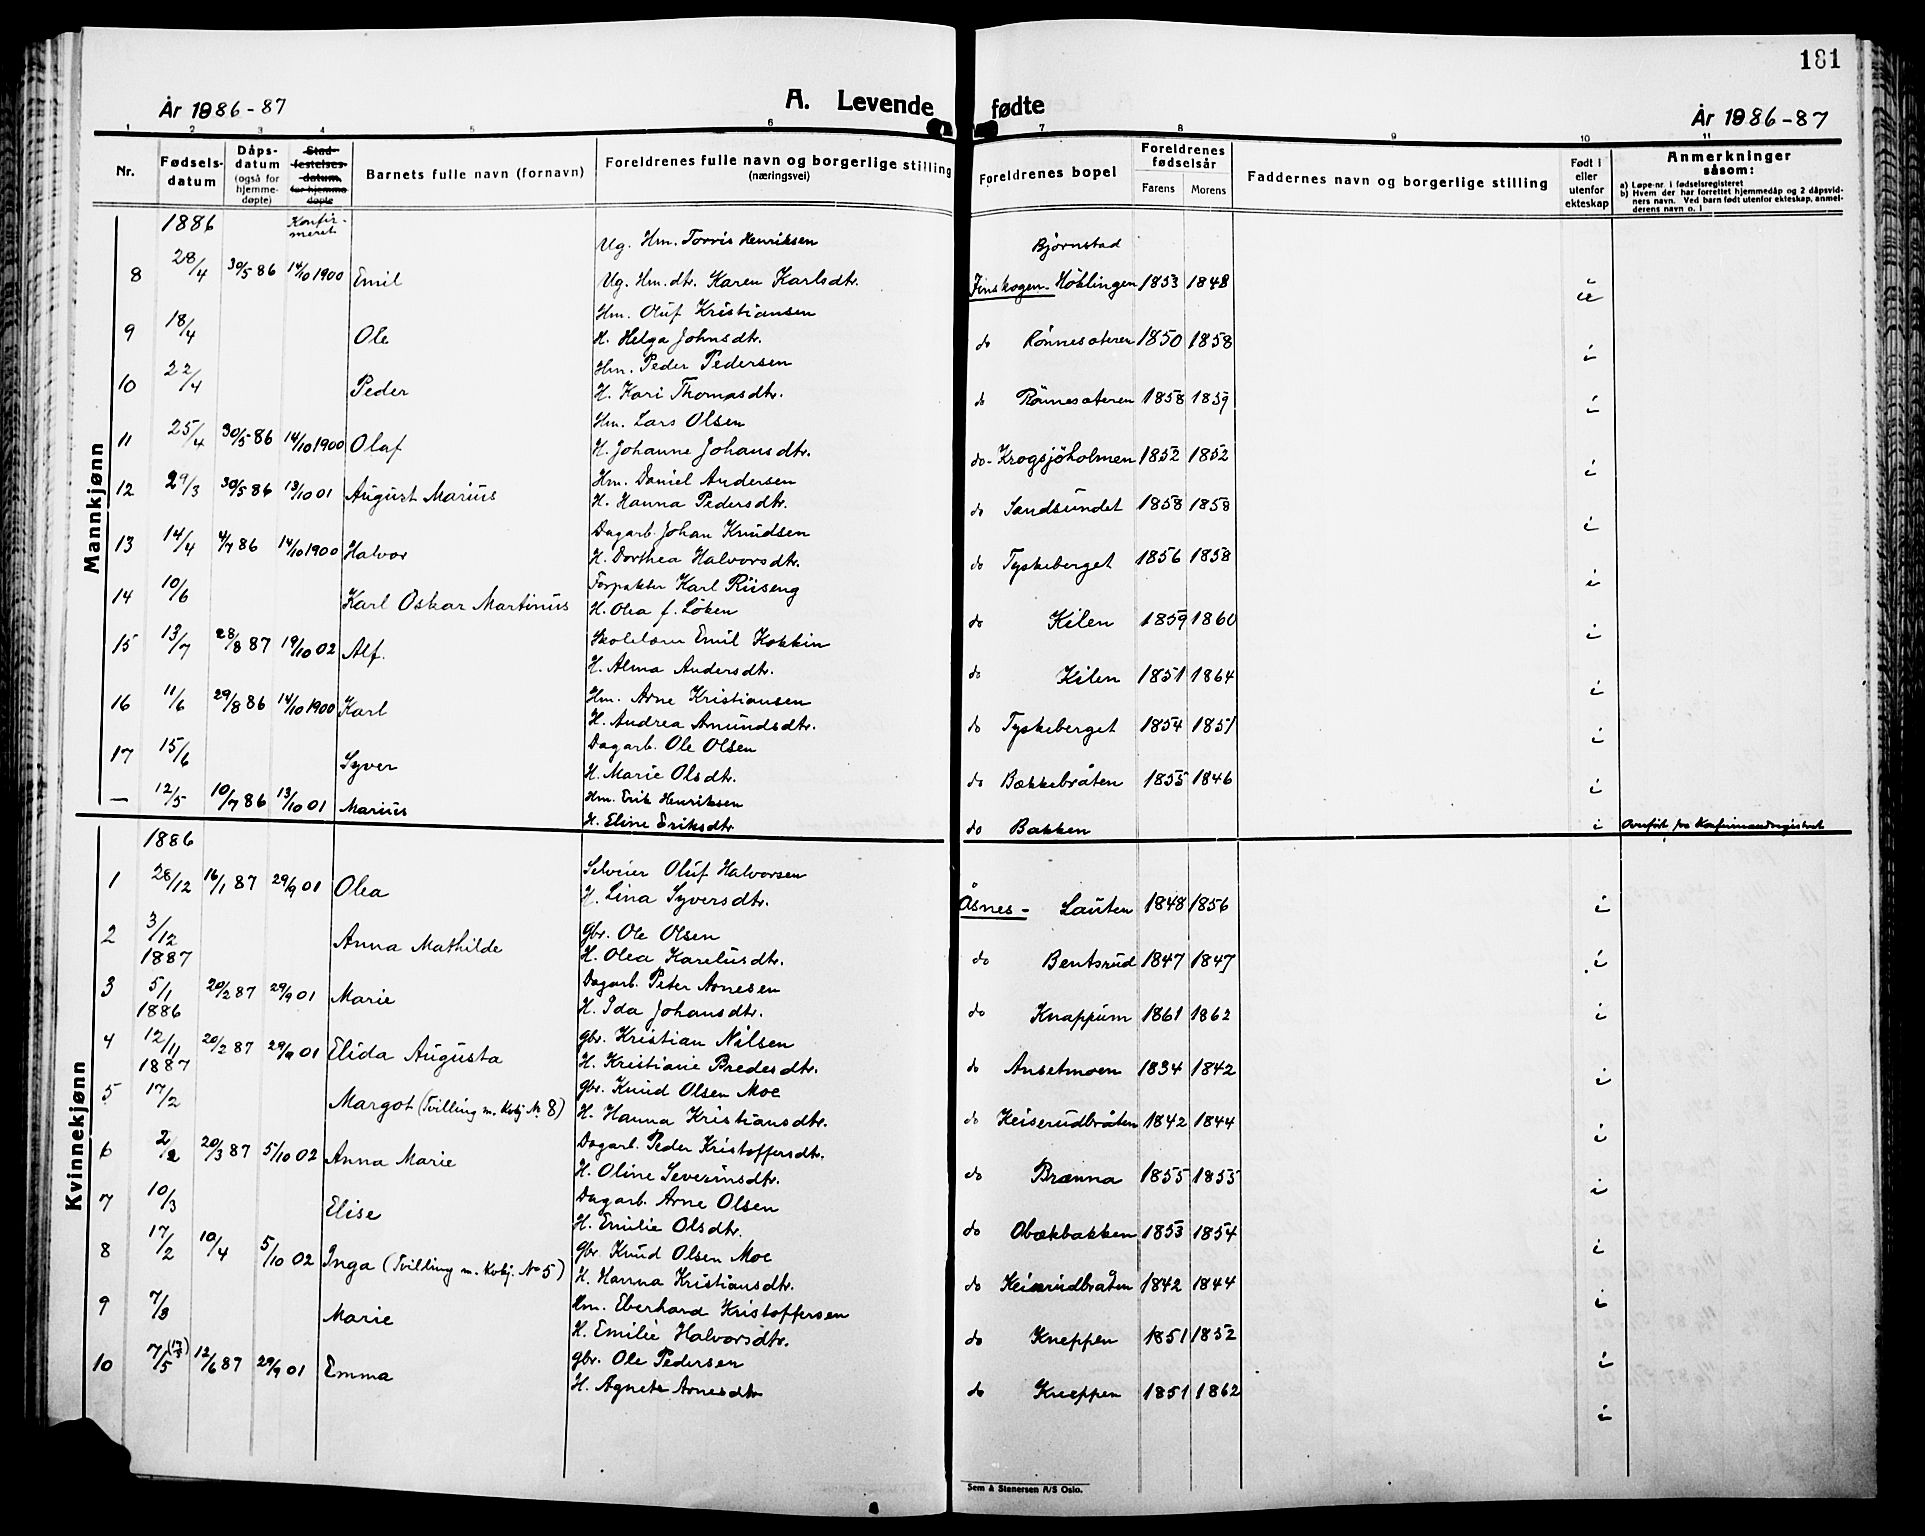 181
År 1886-87 A. Levende fødte År 1886-87
1 2 3 4 5 6 7 8 9 10 11
Nr. Fødsels-datum Dåps-datum (også for hjemme-døpte) Stad-festelses-datum for hjemme døpte Barnets fulle navn (fornavn) Foreldrenes fulle navn og borgerlige stilling (næringsvei) Foreldrenes bopel Foreldrenes fødselsår Farens Morens Faddernes navn og borgerlige stilling Født i eller utenfor ekteskap Anmerkninger såsom:
a) Løpe-nr. i fødselsregisteret
b) Hvem der har forrettet hjemmedåp og 2 dåpsvidners navn. Ved barn født utenfor ekteskap, anmelderens navn o. l
Mannkjønn
1886 Konfirmeret
Ug. Hm. Torvis Henriksen Bjørnstad
8 28/4 30/5 86 14/10 1900 Emil Ug. Hm. dtr. Karen Karlsdtr. Finskogen - Høklingen 1853 1848 u
Hm. Oluf Kristiansen
9 18/4 Ole H. Helga Johnsdtr. do Rønnesæteren 1850 1858 i
Hm. Peder Pedersen
10 22/4 Peder H. Kari Thomasdtr. do Rønnesæteren 1858 1859 i
Hm. Lars Olsen
11 25/4 30/5 86 14/10 1900 Olaf H. Johanne Johansdtr. do - Krogsjøholmen 1852 1852 i
Hm. Daniel Andersen
12 29/3 30/5 86 13/10 01 August Marius H. Hanna Pedersdtr. do Sandsundet 1858 1858 i
Dagarb. Johan Knudsen
13 14/4 4/7 86 14/10 1900 Halvor H. Dorthea Halvorsdtr. do Tyskeberget 1856 1858 i
Forpakter Karl Riiseng
14 10/6 Karl Oskar Martinus H. Olea f. Løken do Kilen 1859 1860 i
Skolelærer Emil Kokkin
15 13/7 28/8 87 19/10 02 Alf. H. Alma Andersdtr. do Kilen 1851 1864 i
Hm. Arne Kristiansen
16 11/6 29/8 86 14/10 1900 Karl H. Andrea Amundsdtr. do Tyskeberget 1854 1851 i
Dagarb. Ole Olsen
17 15/6 Syver H. Marie Olsdtr. do Bækkebråten 1855 1846 i
Hm. Erik Henriksen
— 12/5 10/7 86 13/10 01 Marius H. Eline Eriksdtr do Bakken i Overført fra Konfirmandregistret
Kvinnekjønn
1886
Selveier Oluf Halvorsen
1 28/12 16/1 87 29/9 01 Olea H. Lina Syversdtr. Åsnes - Lauten 1848 1856 i
gbr. Ole Olsen
2 3/12 Anna Mathilde H. Olea Kareliusdtr. do Bentsrud 1847 1847 i
1887
Dagarb. Peter Arnesen
3 5/1 20/2 87 29/9 01 Marie H. Ida Johansdtr. do Knappum 1861 1862 i
1886
gbr. Kristian Nilsen
4 12/11 20/2 87 29/9 01 Elida Augusta H. Kristiane Bredesdtr. do Ansetmoen 1834 1842 i
1887
gbr. Knud Olsen Moe
5 17/2 Margot (Tvilling m. Kvkj. No 8) H. Hanna Kristiansdtr. do Keiserudbråten 1842 1844 i
Dagarb. Peder Kristoffersdtr.
6 2/2 20/3 87 5/10 02 Anna Marie H. Oline Severinsdtr. do Brænna 1855 1855 i
Dagarb. Arne Olsen
7 10/3 Elise H. Emilie Olsdtr. do Obækbakken 1853 1854 i
gbr. Knud Olsen Moe
8 17/2 10/4 5/10 02 Inga (Tvilling m. Kvkj. No 5) H. Hanna Kristiansdtr. do Keiserudbråten 1842 1844 i
Hm. Eberhard Kristoffersen
9 7/3 Marie H. Emilie Halvorsdtr. do Kneppen 1851 1852 i
gbr. Ole Pedersen
10 7/5 12/6 87 29/9 01 Emma H. Agnete Arnesdtr do Kneppen 1851 1862 i
Sem & Stenersen A/S Oslo.